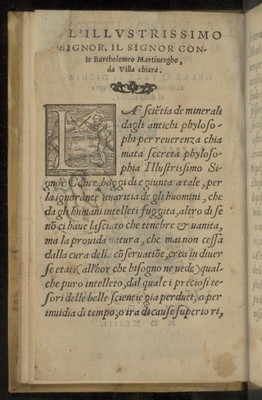 L'ILLVSTRISSIMO
SIGNOR, IL SIGNOR CON-
te Bartholomeo Martinengho,
da Villa chiara.
LA sciẽtia de minerali
dagli antichi phyloso-
phi per reuerenza chia
mata secreta phyloso-
phia Illustrissimo Si-
gnor Conte, hoggi di e giunta a tale, per
la ignorante auaritia de gli huomini, che
da gli humani intelleti fuggita, altro di se
nõ ci haue lasciato che tenebre & vanita,
ma la prouida natura, che mai non cessa
dalla cura della cõseruatiõe, crea in diuer
se etati, allhor che bisogno ne uede, qual-
che puro intelleto, dal quale i preciosi te-
sori delle belle scientie gia perduti, o per
inuidia di tempo, o ira di cause superiori,